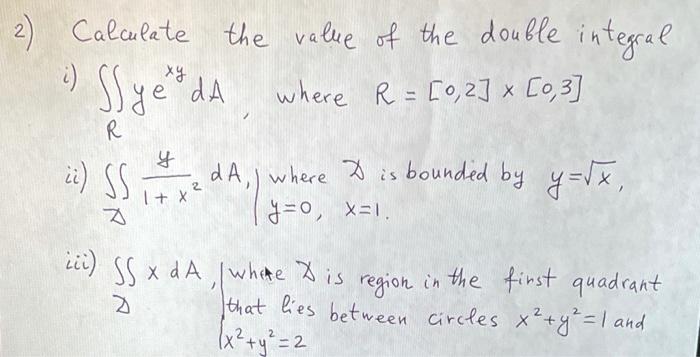 2) Calculate the value of the double integral
i) ∬_R ye^{xy} dA, where R = [0,2] × [0,3]
ii) ∬_D y/(1 + x²) dA, where D is bounded by y=√x,
y=0, x=1.
iii) ∬_D x dA, where D is region in the first quadrant
that lies between circles x²+y²=1 and
x²+y²=2